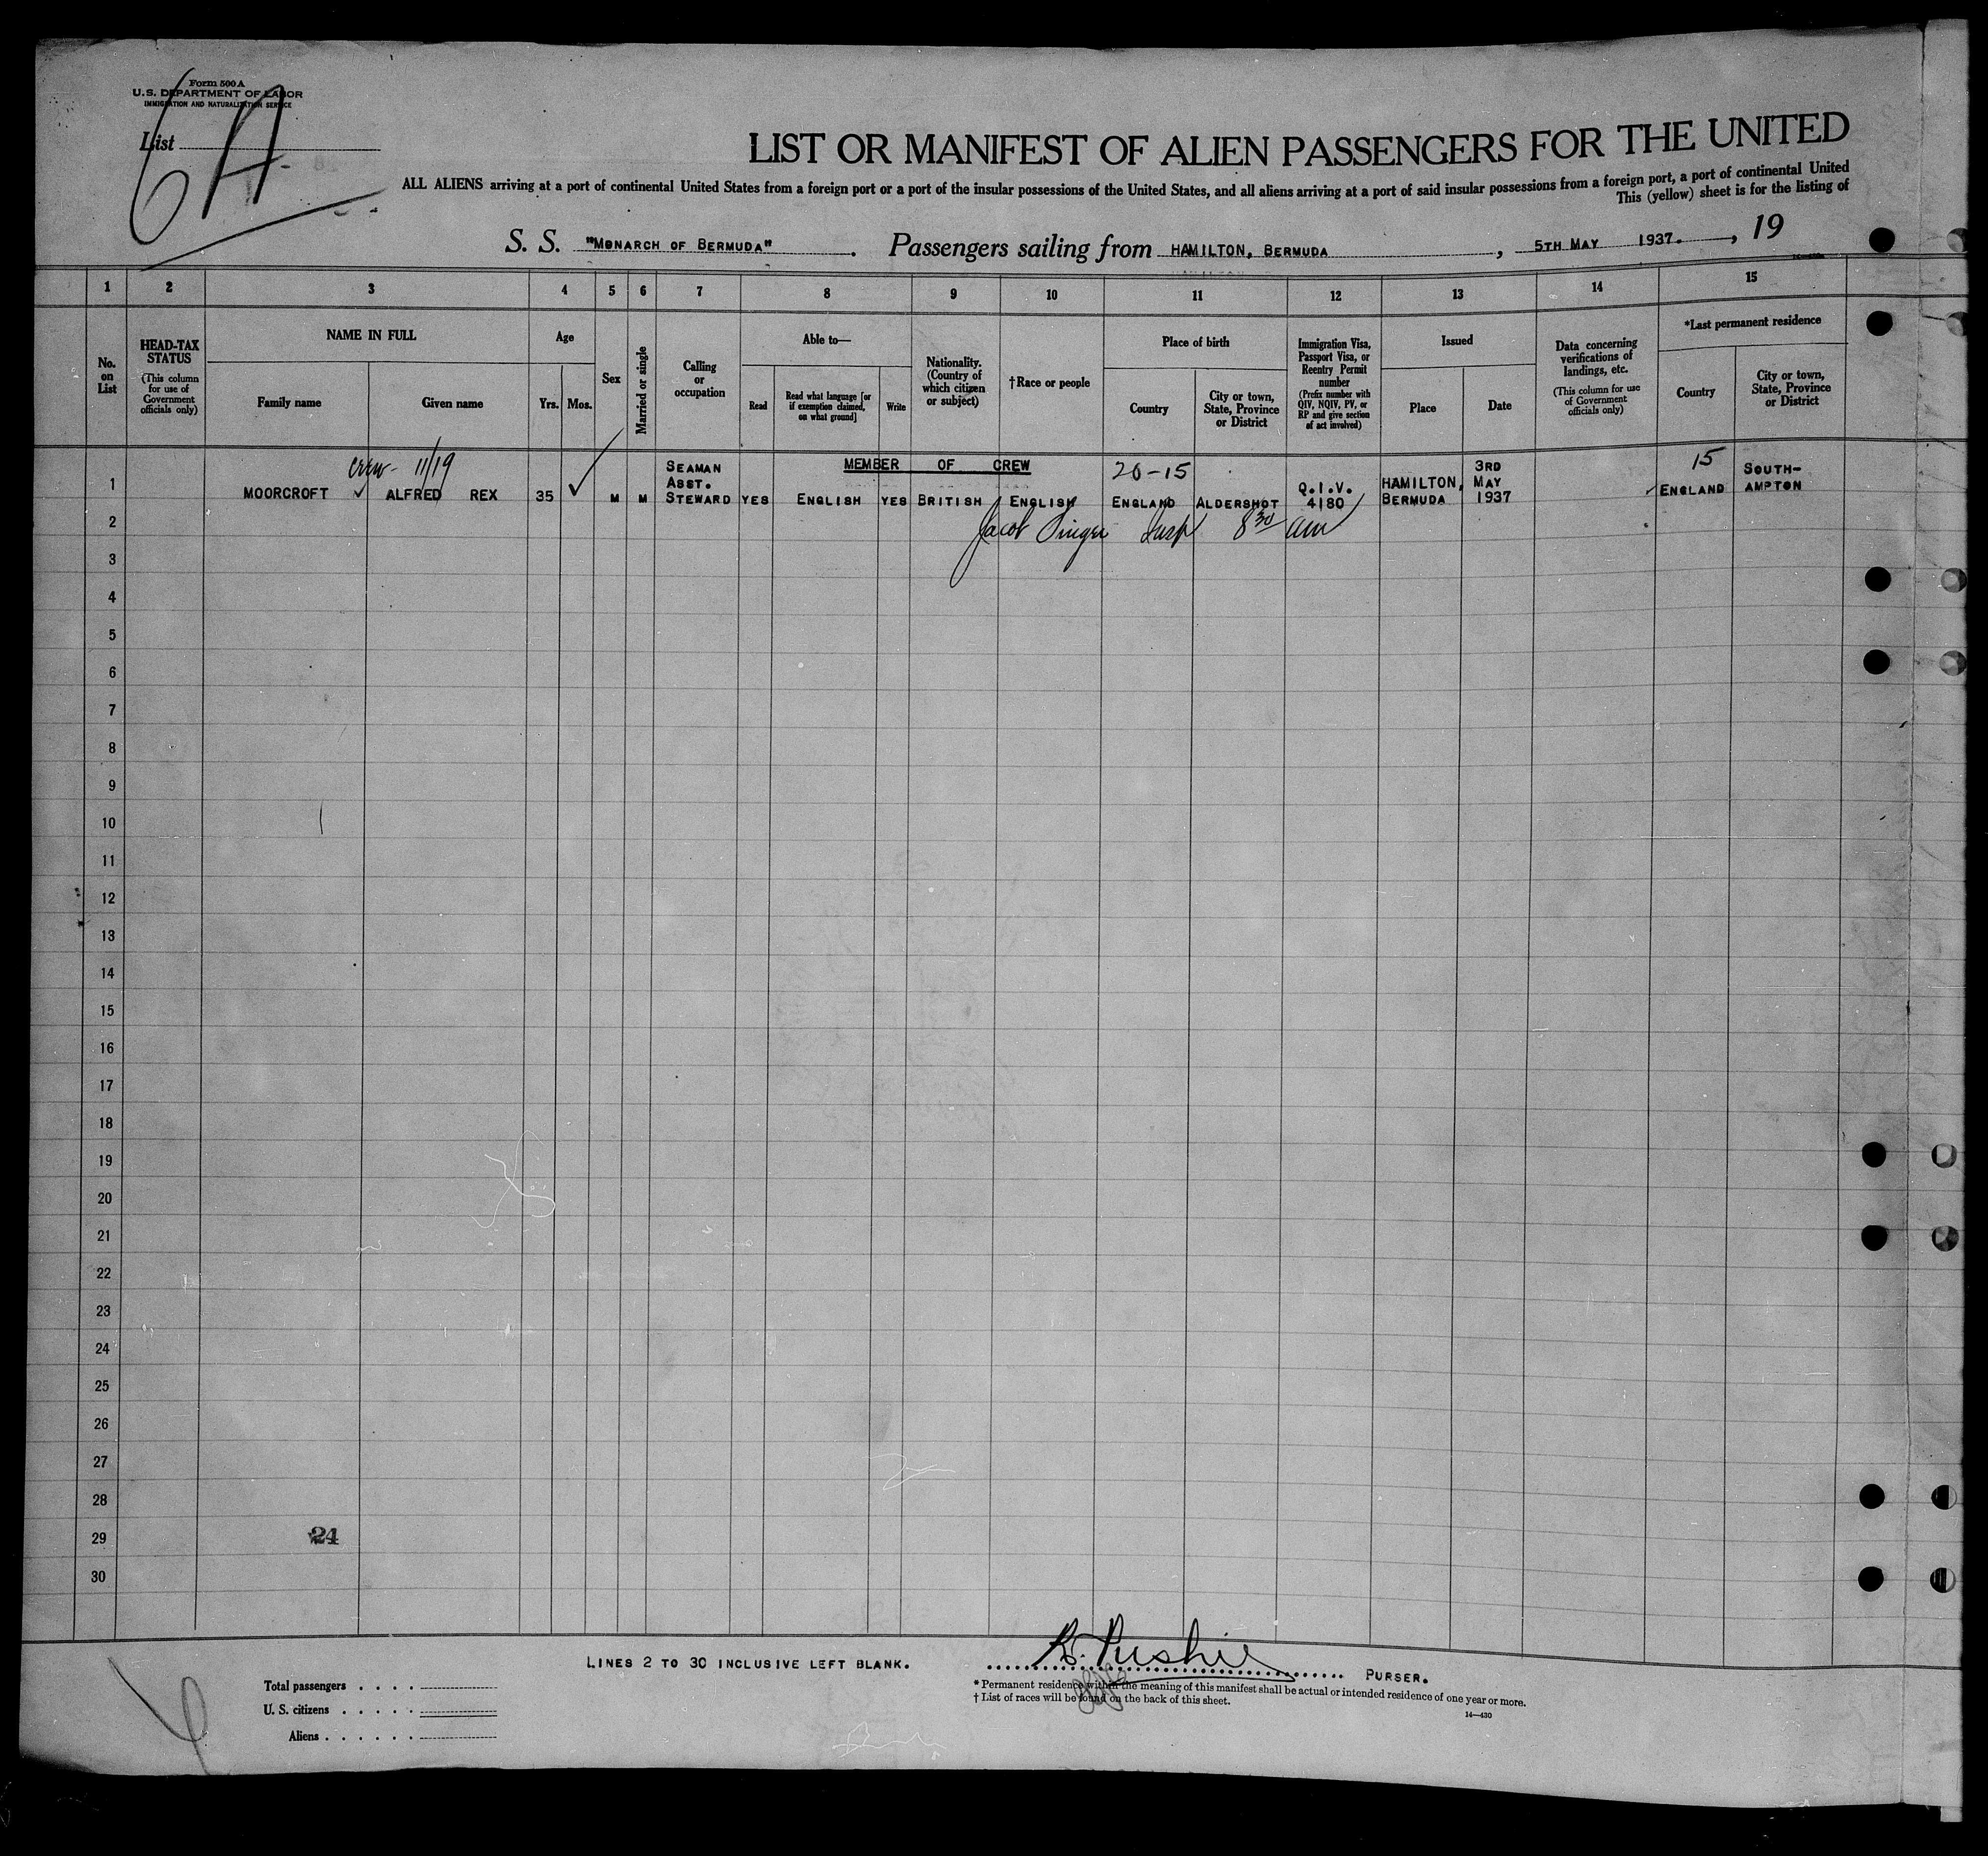 Form 500 A
U.S. DEPARTMENT OF LABOR
IMMIGRATION AND NATURALIZATION SERVICE
List
6A
LIST OR MANIFEST OF ALIEN PASSENGERS FOR THE UNITED
ALL ALIENS arriving at a port of continental United States from a foreign port or a port of the insular possessions of the United States, and all aliens arriving at a port of said insular possessions from a foreign port, a port of continental United
This (yellow) sheet is for the listing of
S. S. "MONARCH OF BERMUDA". Passengers sailing from HAMILTON, BERMUDA, 5TH MAY 1937., 19
1 2 3 4 5 6 7 8 9 10 11 12 13 14 15
No. on List
HEAD-TAX STATUS
(This column for use of Government officials only)
NAME IN FULL
Family name
Given name
Age
Yrs. Mos.
Sex
Married or single
Calling or occupation
Able to—
Read
Read what language [or if exemption claimed, on what ground]
Write
Nationality. (Country of which citizen or subject)
†Race or people
Place of birth
Country
City or town, State, Province or District
Immigration Visa, Passport Visa, or Reentry Permit number
(Prefix number with QIV, NQIV, PV, or RP and give section of act involved)
Issued
Place
Date
Data concerning verifications of landings, etc.
(This column for use of Government officials only)
*Last permanent residence
Country
City or town, State, Province or District
crew- 11/19
MEMBER OF CREW
20-15
15
1 MOORCROFT ✓ ALFRED REX 35 ✓ M M SEAMAN ASST. STEWARD YES ENGLISH YES BRITISH ENGLISH ENGLAND ALDERSHOT Q.I.V. 4180 HAMILTON, BERMUDA 3RD MAY 1937 ✓ ENGLAND SOUTH-AMPTON
2
Jacob 8 30 am
3
4
5
6
7
8
9
10
11
12
13
14
15
16
17
18
19
20
21
22
23
24
25
26
27
28
29 24
30
LINES 2 TO 30 INCLUSIVE LEFT BLANK.
PURSER.
Total passengers
U. S. citizens
Aliens
* Permanent residence within the meaning of this manifest shall be actual or intended residence of one year or more.
† List of races will be found on the back of this sheet.
14—430